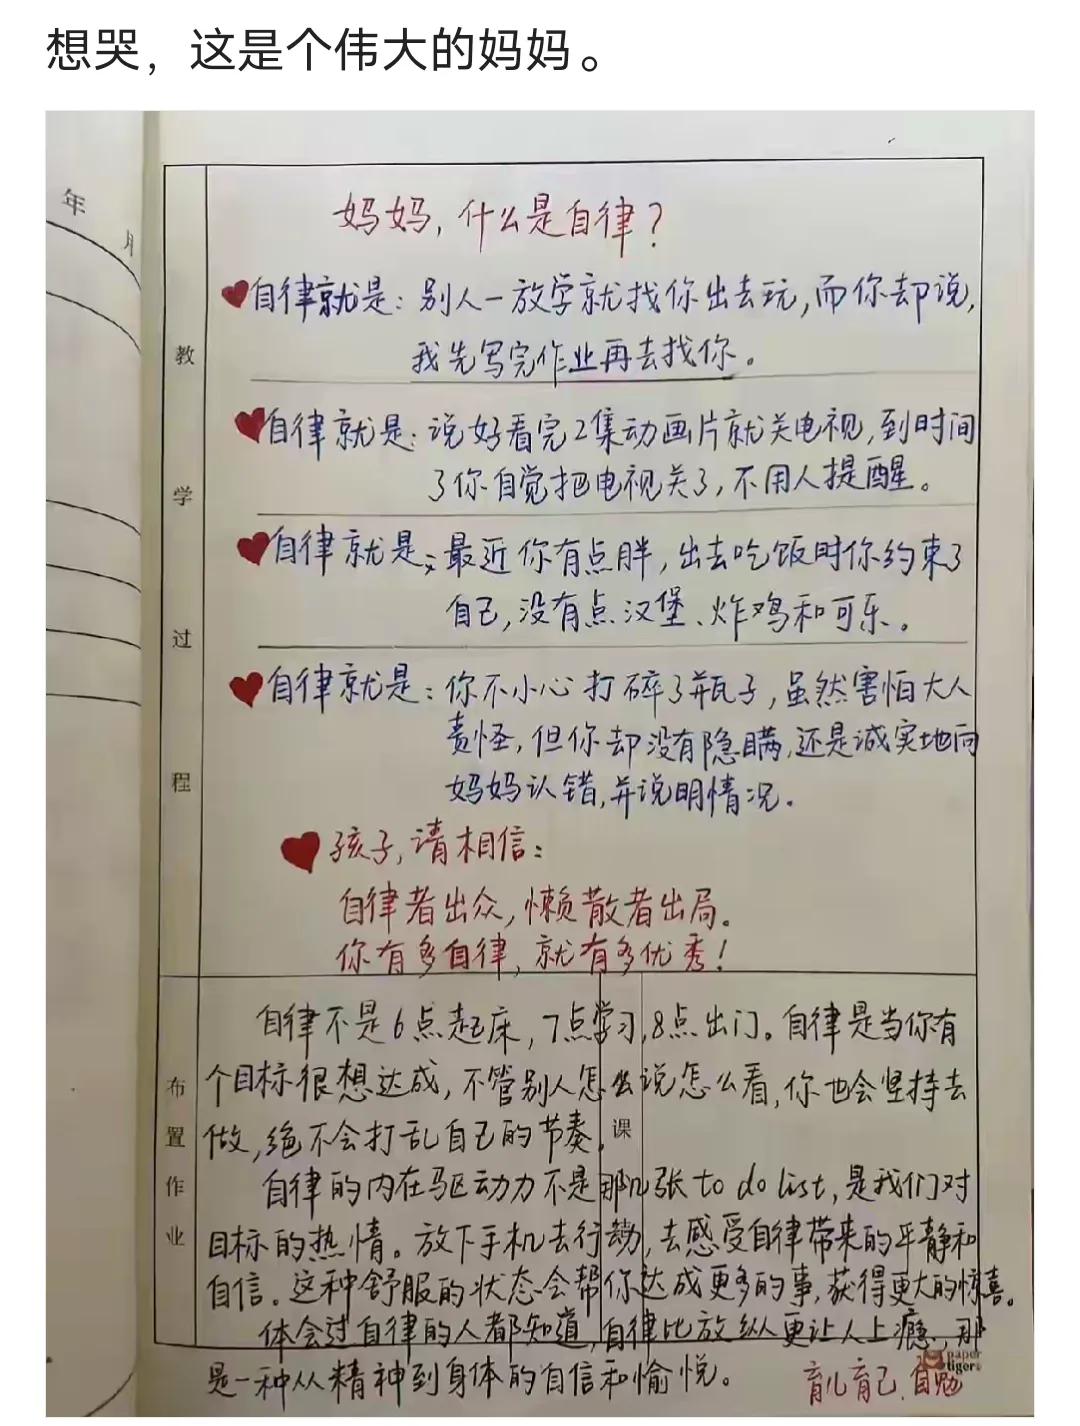 想哭，这是个伟大的妈妈。
年
月
妈妈,什么是自律?
自律就是: 别人一放学就找你出去玩,而你却说,
我先写完作业再去找你。
自律就是: 说好看完2集动画片就关电视,到时间
了你自觉把电视关了,不用人提醒。
自律就是: 最近你有点胖,出去吃饭时你约束了
自己,没有点汉堡、炸鸡和可乐。
自律就是: 你不小心打碎了瓶子,虽然害怕大人
责怪,但你却没有隐瞒,还是诚实地向
妈妈认错,并说明情况。
孩子,请相信:
自律者出众,懒散者出局。
你有多自律,就有多优秀!
教学过程
自律不是6点起床,7点学习,8点出门。自律是当你有
个目标很想达成,不管别人怎么说怎么看,你也会坚持去
做,绝不会打乱自己的节奏。
自律的内在驱动力不是那几张to do list,是我们对
目标的热情。放下手机去行动,去感受自律带来的平静和
自信。这种舒服的状态会帮你达成更多的事,获得更大的惊喜。
体会过自律的人都知道,自律比放纵更让人上瘾,那
是一种从精神到身体的自信和愉悦。
布置作业
课
育儿育己,自勉
paper
tiger®